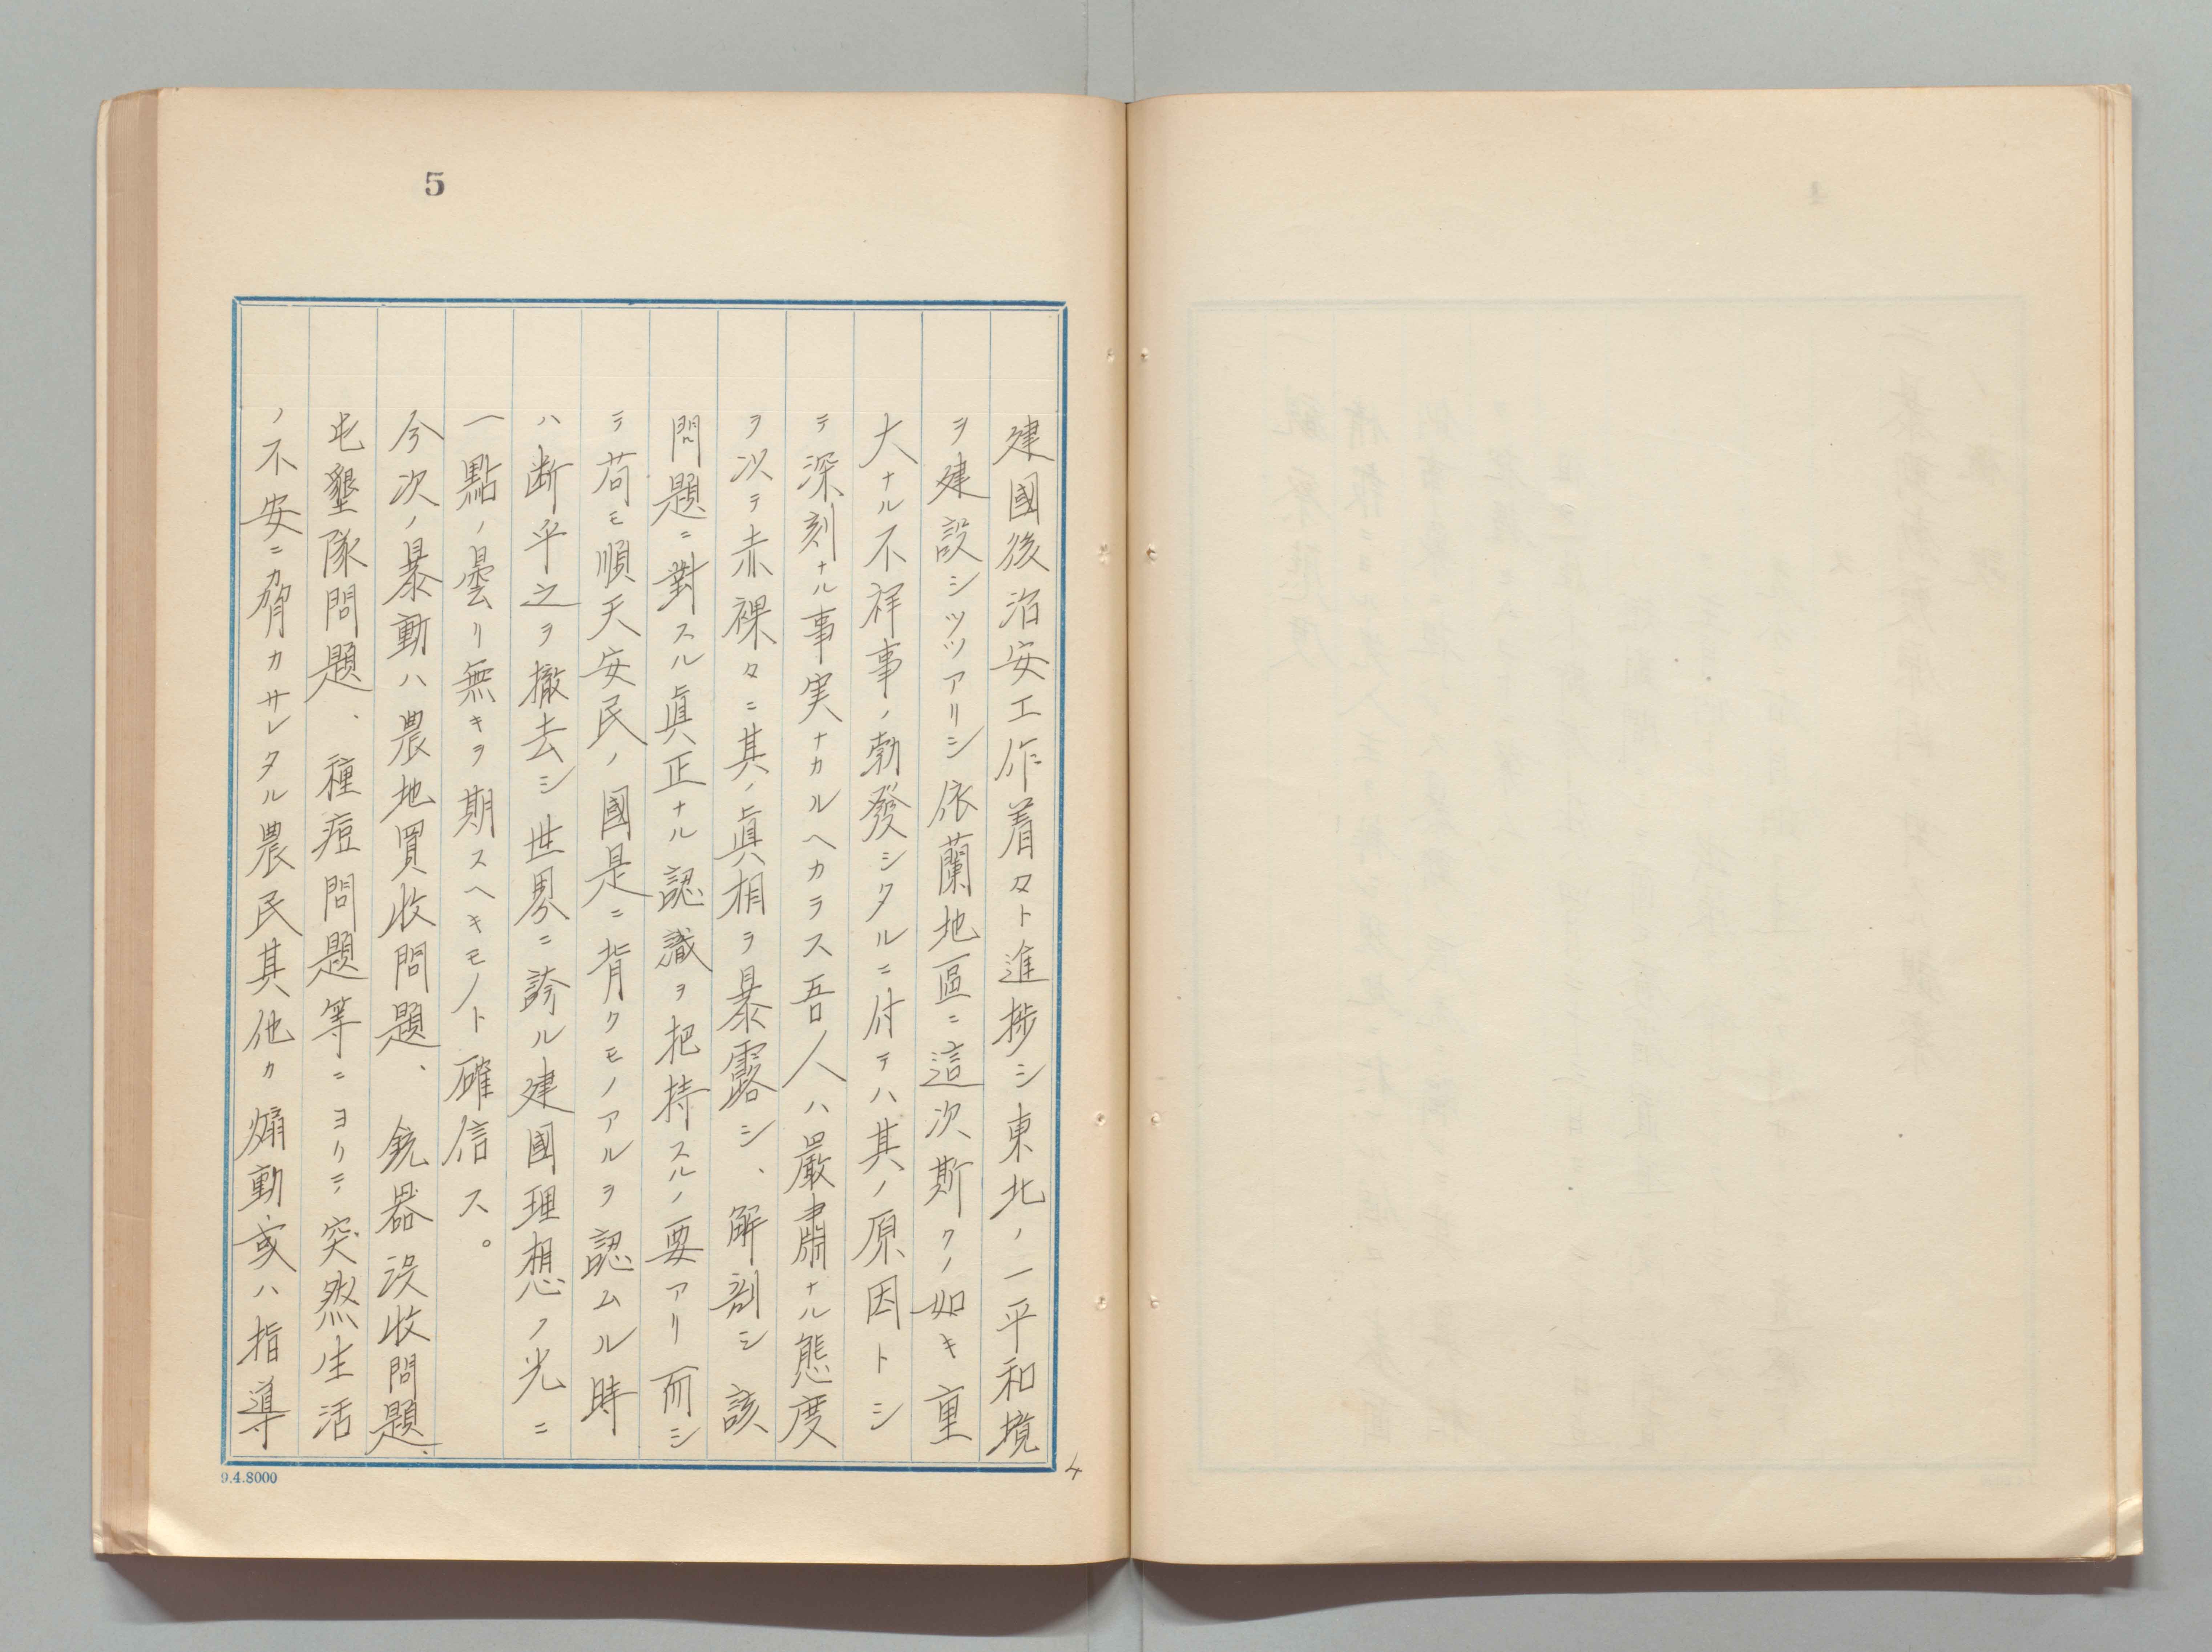 5
建國後治安工作着々ト進捗シ東北ノ一平和境
ヲ建設シツツアリシ依蘭地區ニ這次斯クノ如キ重
大ナル不祥事ノ勃發シタルニ付テハ其ノ原因トシ
テ深刻ナル事実ナカルヘカラス吾人ハ嚴肅ナル態度
ヲ以テ赤裸々ニ其ノ眞相ヲ暴露シ、解剖シ該
問題ニ對スル眞正ナル認識ヲ把持スルノ要アリ而シ
テ苟モ順天安民ノ國是ニ背クモノアルヲ認ムル時
ハ断乎之ヲ撤去シ世界ニ誇ル建國理想ノ光ニ
一點ノ曇リ無キヲ期スヘキモノト確信ス。
今次ノ暴動ハ農地買收問題、銃器没收問題、
屯墾隊問題、種痘問題等ニヨリテ突然生活
ノ不安ニカ脅カサレタル農民其他カ煽動或ハ指導
4
9.4.8000